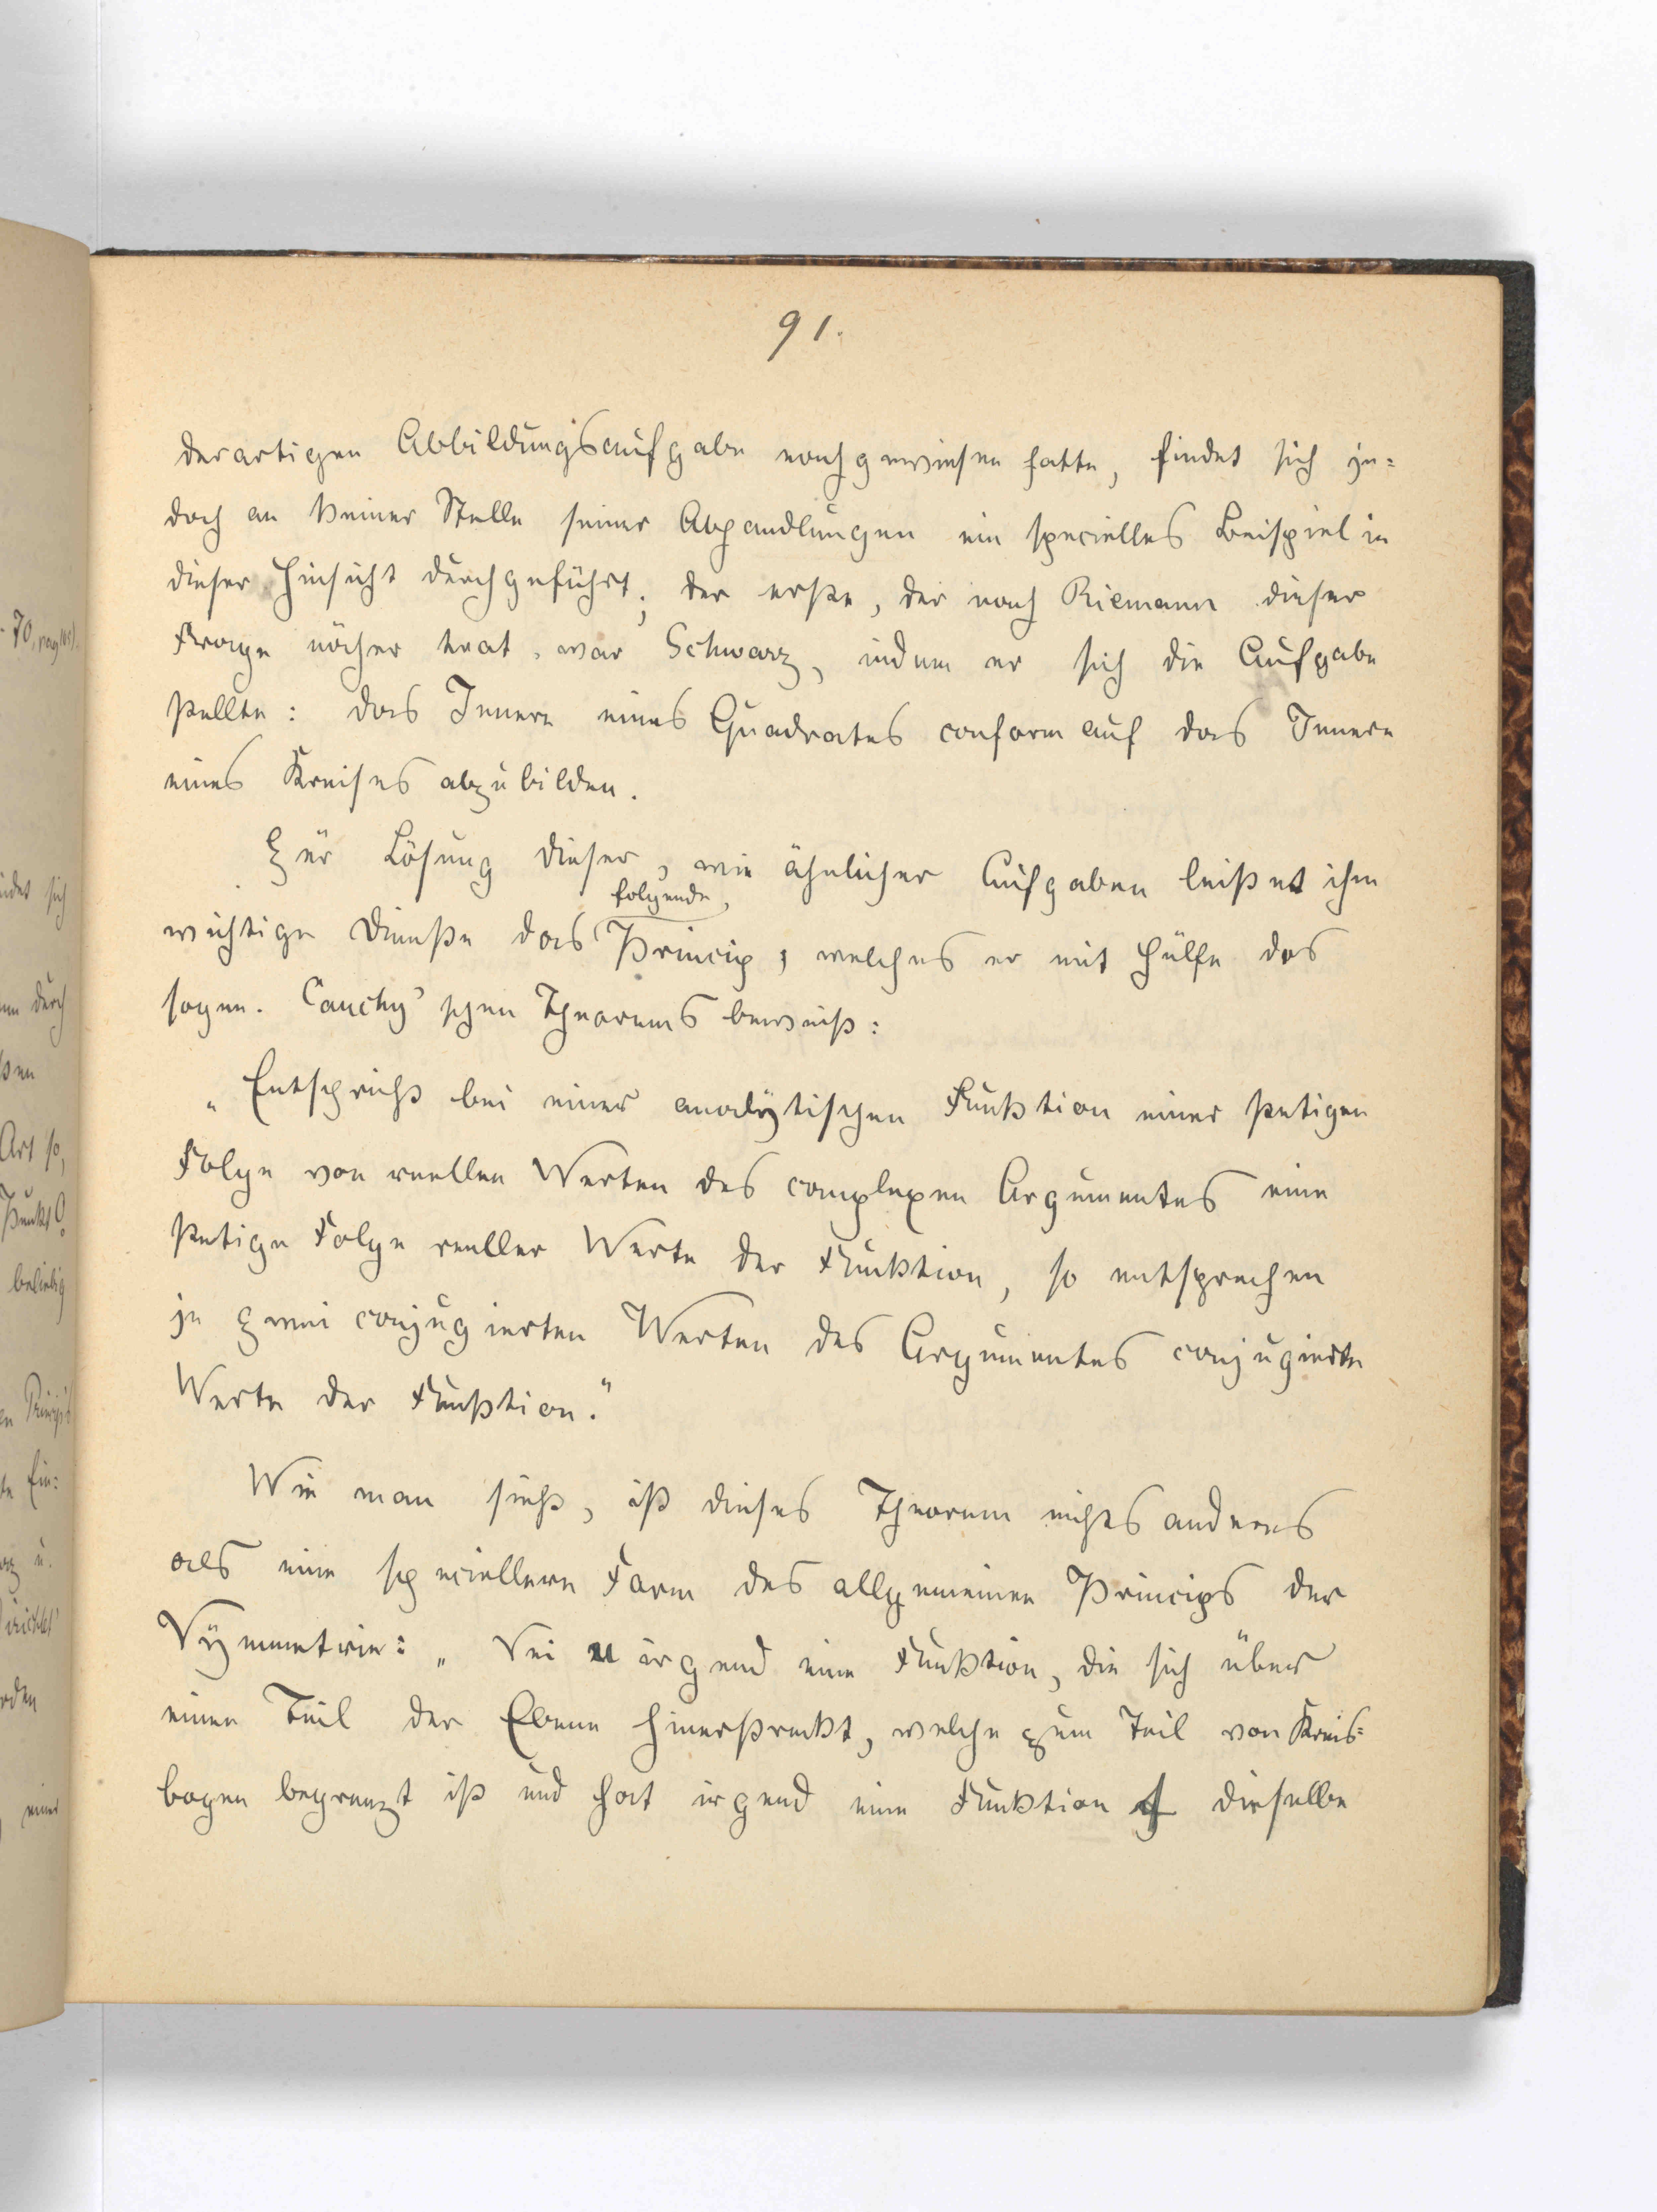 91.
derartigen Abbildungsaufgabe nachgewiesen hatte, findet sich je=
doch an keiner Stelle seiner Abhandlungen ein specielles Beispiel in
dieser Hinsicht durchgeführt; der erste, der nach Riemann dieser
Frage näher trat, war Schwarz, indem er sich die Aufgabe
stellte: das Innere eines Quadrates conform auf das Innere
eines Kreises abzubilden.
Zur Lösung dieser, wie ähnlicher Aufgaben leistet ihm
folgende,
wichtige Dienste das Princip, welches er mit Hülfe des
sogen. Cauchy'schen Theorems beweist:
„Entspricht bei einer analytischen Funktion einer stetigen
Folge von reellen Werten des complexen Argumentes eine
stetige Folge reeller Werte der Funktion, so entsprechen
je zwei conjugierten Werten des Argumentes conjugierte
Werte der Funktion."
Wie man sieht, ist dieses Theorem nichts anderes
als eine speciellere Form des allgemeinen Princips der
Symmetrie: „Sei u irgend eine Funktion, die sich über
einen Teil der Ebene hinerstreckt, welche zum Teil von Kreis=
bogen begrenzt ist und hat irgend eine Funktion f dieselbe
70, pag
idet sich
durch
Art so,
Punkt
beliebig
Ein:
u.
einer